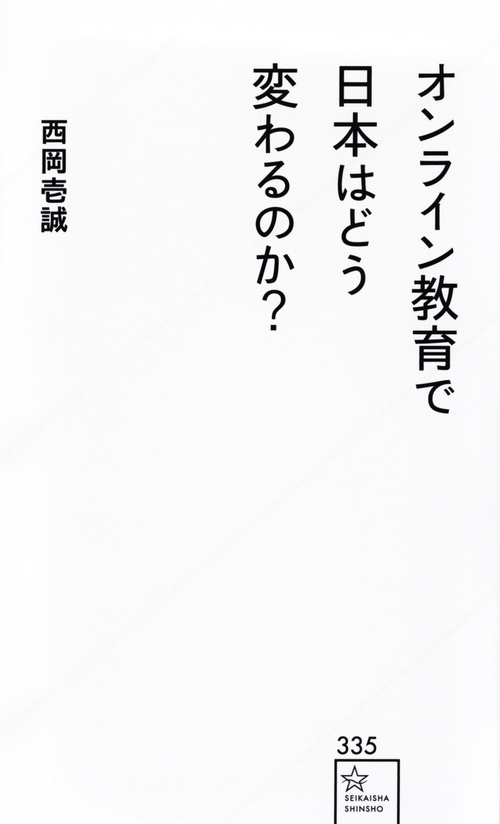 オンライン教育で
日本はどう
変わるのか?
西岡壱誠
335
SEIKAISHA
SHINSHO